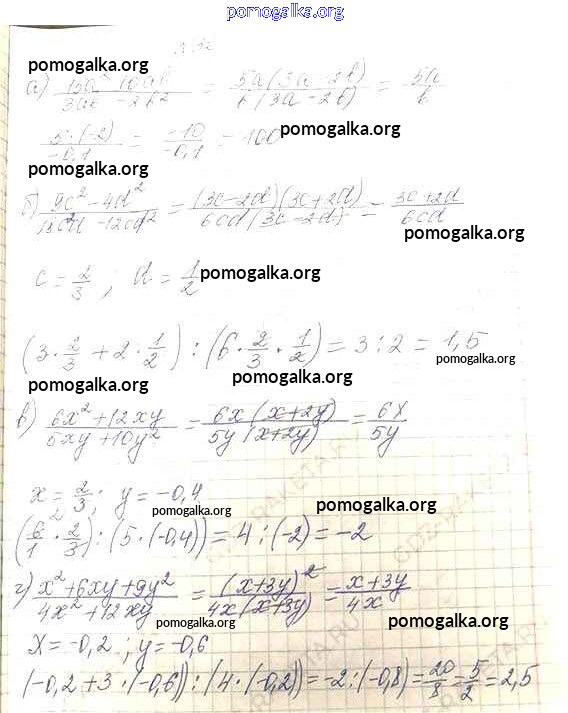 pomogalka.org
pomogalka.org
а) (15a² - 10ab)/(3ab - 2b²) = 5a(3a - 2b)/b(3a - 2b) = 5a/b
5·(-2)/-0,1 = -10/-0,1 = 100 pomogalka.org
pomogalka.org
б) (9c² - 4d²)/(18c²d - 12cd²) = (3c - 2d)(3c + 2d)/6cd(3c - 2d) = (3c + 2d)/6cd
pomogalka.org
c = 2/3 ; d = 1/2 pomogalka.org
(3 · 2/3 + 2 · 1/2) : (6 · 2/3 · 1/2) = 3 : 2 = 1,5
pomogalka.org
pomogalka.org
в) (6x² + 12xy)/(5xy + 10y²) = 6x(x + 2y)/5y(x + 2y) = 6x/5y
x = 2/3 ; y = -0,4
pomogalka.org pomogalka.org
(6/1 · 2/3) : (5 · (-0,4)) = 4 : (-2) = -2
pomogalka.org
г) (x² + 6xy + 9y²)/(4x² + 12xy) = (x + 3y)²/4x(x + 3y) = (x + 3y)/4x
pomogalka.org pomogalka.org
x = -0,2 ; y = -0,6
(-0,2 + 3 · (-0,6)) : (4 · (-0,2)) = -2 : (-0,8) = 20/8 = 5/2 = 2,5